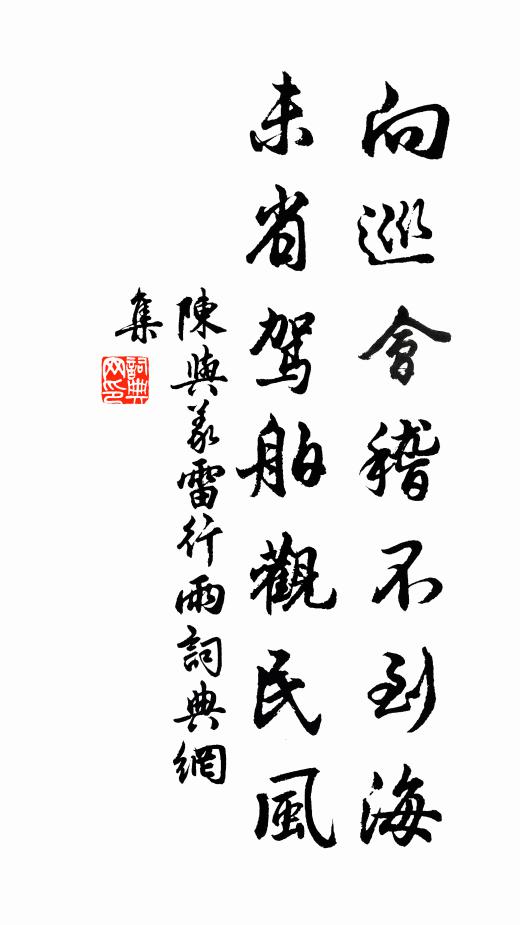 向巡會稽不到海
未省駕舶觀民風
陳與義雷行雨詞典網
集
詞典网印